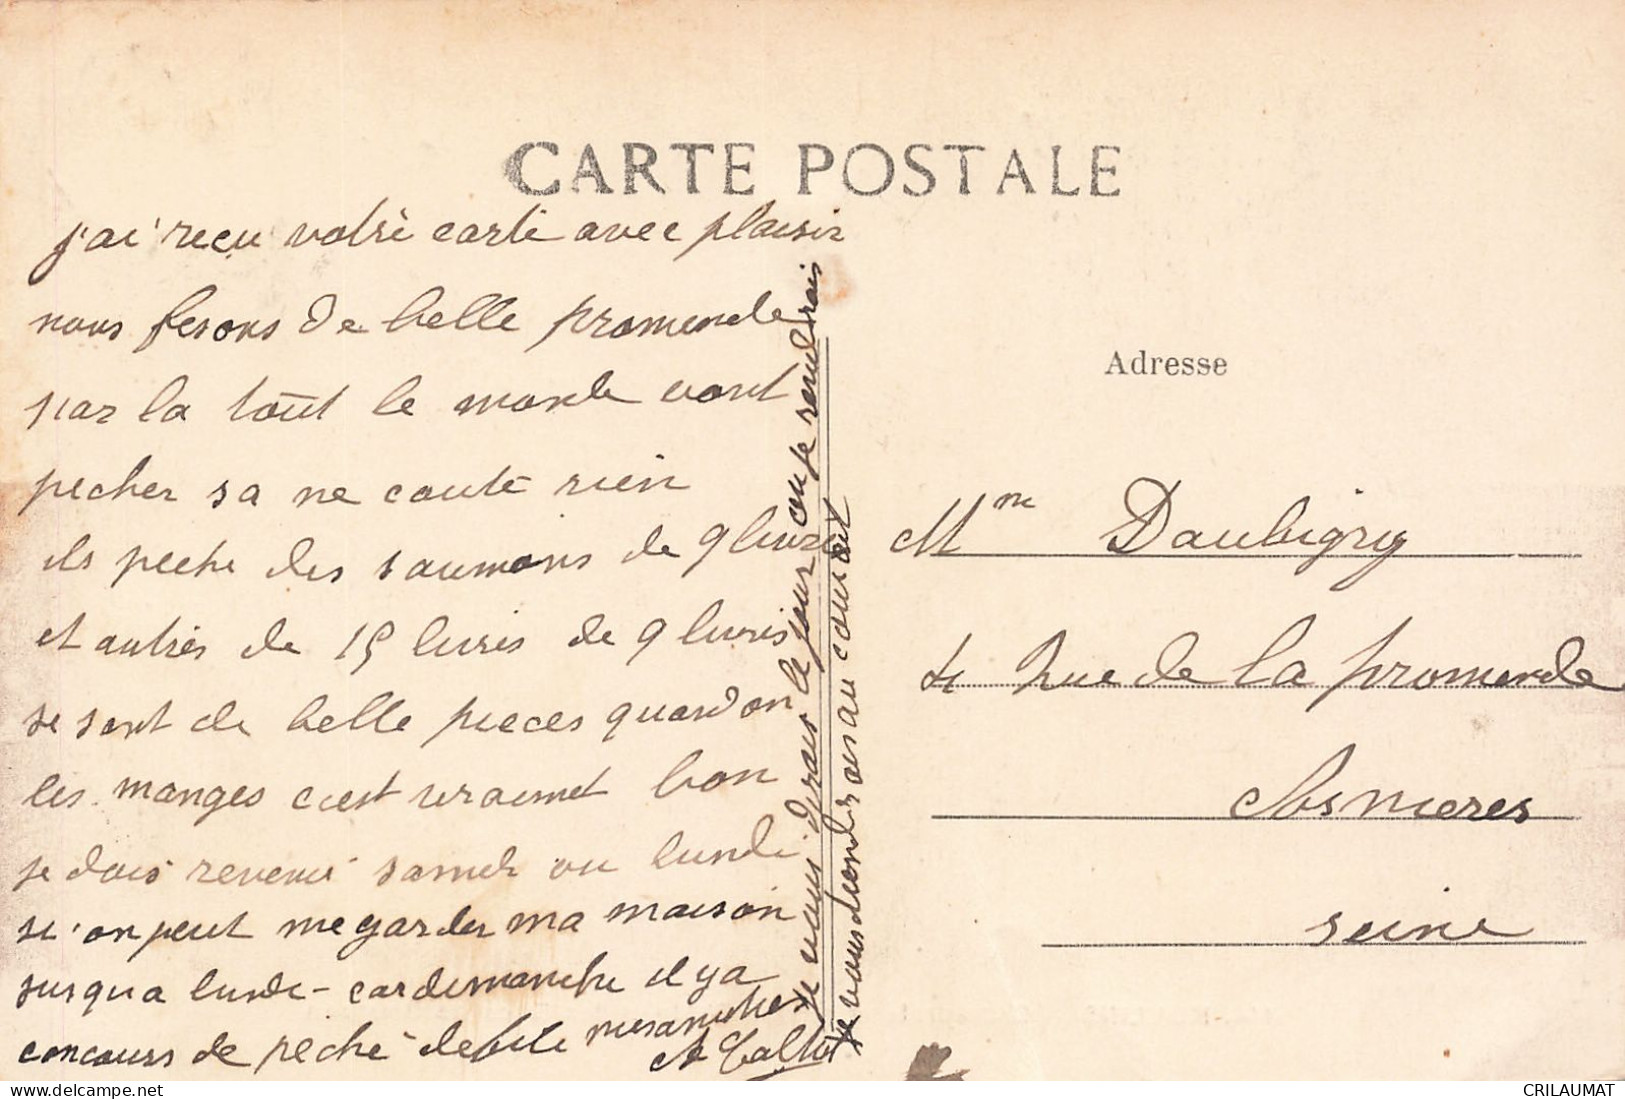 CARTE POSTALE
j'ai reçu votre carte avec plaisir
nous fesons de belle promende
par la tout le monde vont
pecher sa ne coute rien
ils peche des saumons de 9 livres
et autres de 15 livres de 9 livres
se sont de belle pieces quand on
les manges c'est vraimet bon
je dois revenir samedi ou lundi
si on peut me garder ma maison
jusqu a lundi - car dimanche il y a
concours de peche
je vous dirais le jour ou je rend rais
je vous tiendrais au courant
Adresse
Mme Daubigny
Rue de la promende
Asnieres
Seine
CRILAUMAT